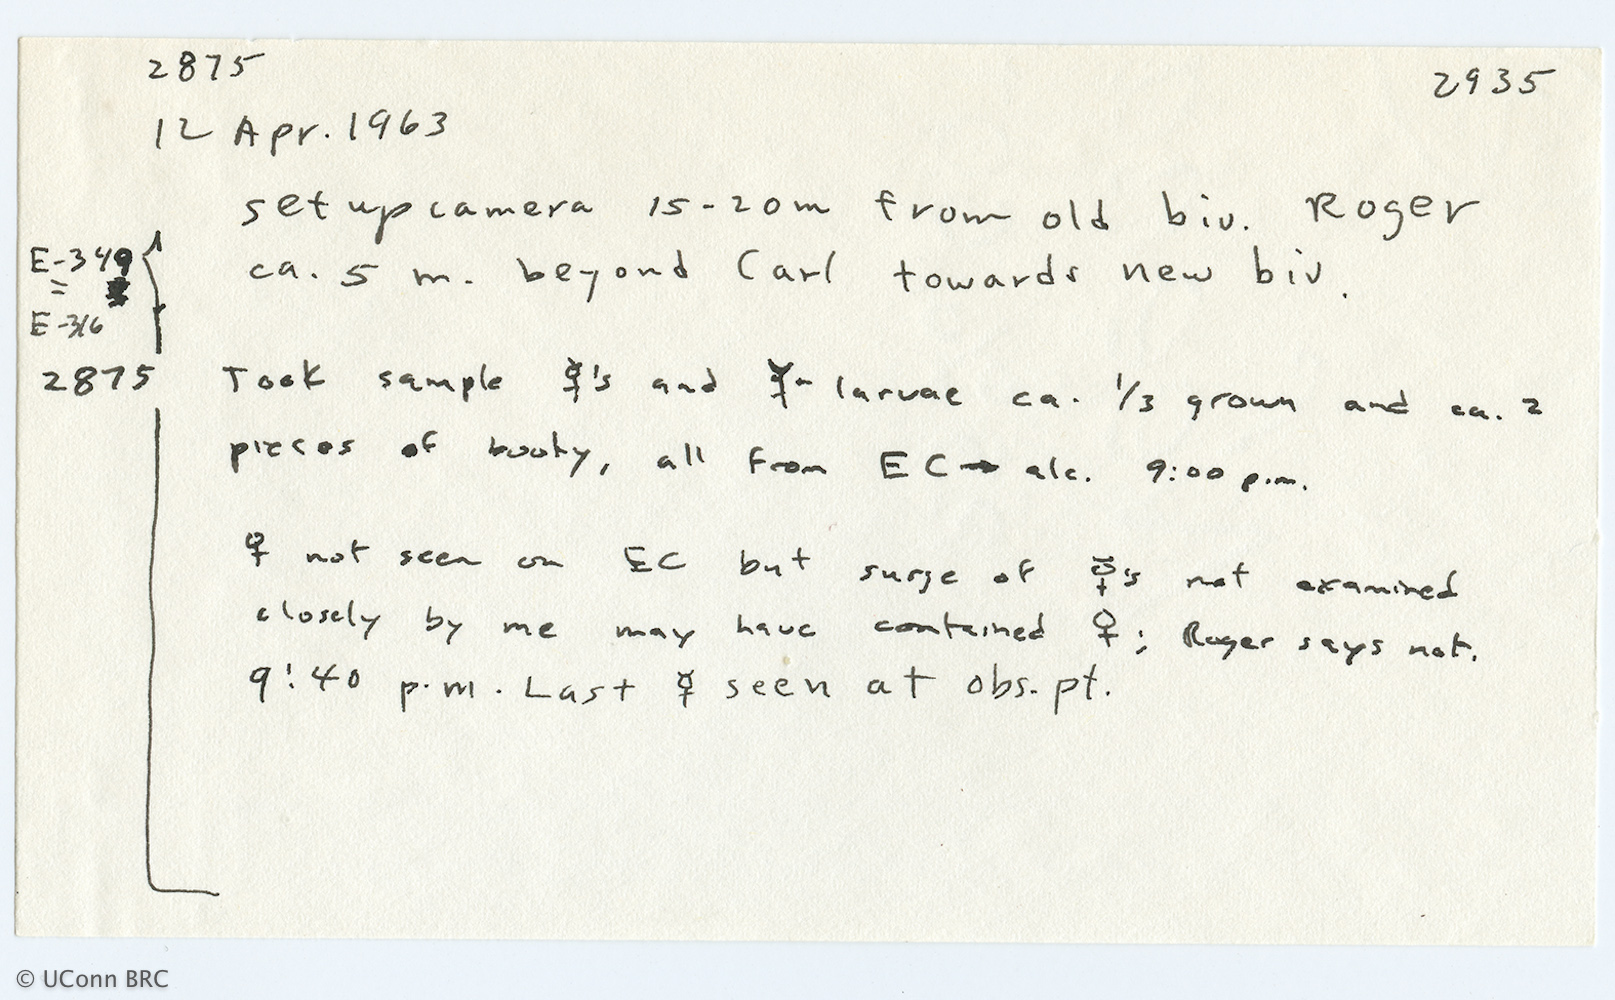 2875
2935
12 Apr. 1963
set up camera 15-20m from old biv. Roger
E-349
ca. 5 m. beyond Carl towards new biv.
=
E-316
2875 Took sample ☿'s and ☿-larvae ca. 1/3 grown and ca. 2
pieces of booty, all from EC → alc. 9:00 p.m.
♀ not seen on EC but surge of ☿'s not examined
closely by me may have contained ♀; Roger says not.
9:40 p.m. Last ☿ seen at obs. pt.
© UConn BRC